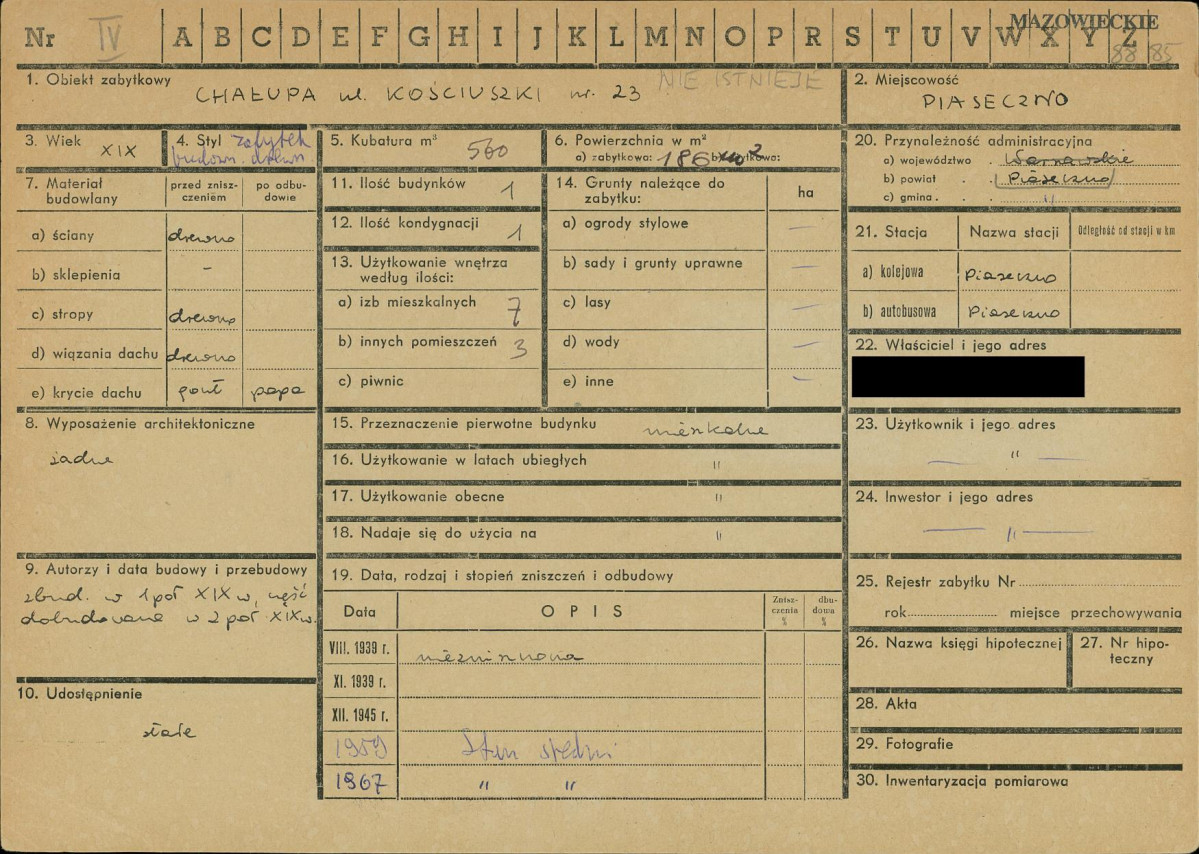 MAZOWIECKIE
Nr IV A B C D E F G H I J K L M N O P R S T U V W X Y Z
88 85
1. Obiekt zabytkowy
NIE ISTNIEJE
CHAŁUPA ul. KOŚCIUSZKI nr. 23
2. Miejscowość
PIASECZNO
3. Wiek XIX
4. Styl zabytek
budown. drewn.
5. Kubatura m³ 560
6. Powierzchnia w m²
a) zabytkowa: 186 m²
20. Przynależność administracyjna
a) województwo . Warszawskie
b) powiat . . Piaseczno
c) gmina . . "
7. Materiał budowlany
przed zniszczeniem
po odbudowie
a) ściany drewno
b) sklepienia –
c) stropy drewno
d) wiązania dachu drewno
e) krycie dachu gont papa
11. Ilość budynków 1
12. Ilość kondygnacji 1
13. Użytkowanie wnętrza
według ilości:
a) izb mieszkalnych 7
b) innych pomieszczeń 3
c) piwnic
14. Grunty należące do
zabytku:
ha
a) ogrody stylowe —
b) sady i grunty uprawne —
c) lasy —
d) wody —
e) inne —
21. Stacja Nazwa stacji Odległość od stacji w km
a) kolejowa Piaseczno
b) autobusowa Piaseczno
22. Właściciel i jego adres
8. Wyposażenie architektoniczne
żadne
15. Przeznaczenie pierwotne budynku mieszkalne
16. Użytkowanie w latach ubiegłych "
17. Użytkowanie obecne "
18. Nadaje się do użycia na "
23. Użytkownik i jego adres
— " —
24. Inwestor i jego adres
— " —
9. Autorzy i data budowy i przebudowy
zbud. w 1 poł XIX w, część
dobudowana w 2 poł XIX w.
10. Udostępnienie
stałe
19. Data, rodzaj i stopień zniszczeń i odbudowy
Data OPIS
Zniszczenia %
dbudowa %
VIII. 1939 r. niezniszczona
XI. 1939 r.
XII. 1945 r.
1959 Stan średni
1967 " "
25. Rejestr zabytku Nr
rok miejsce przechowywania
26. Nazwa księgi hipotecznej
27. Nr hipoteczny
28. Akta
29. Fotografie
30. Inwentaryzacja pomiarowa